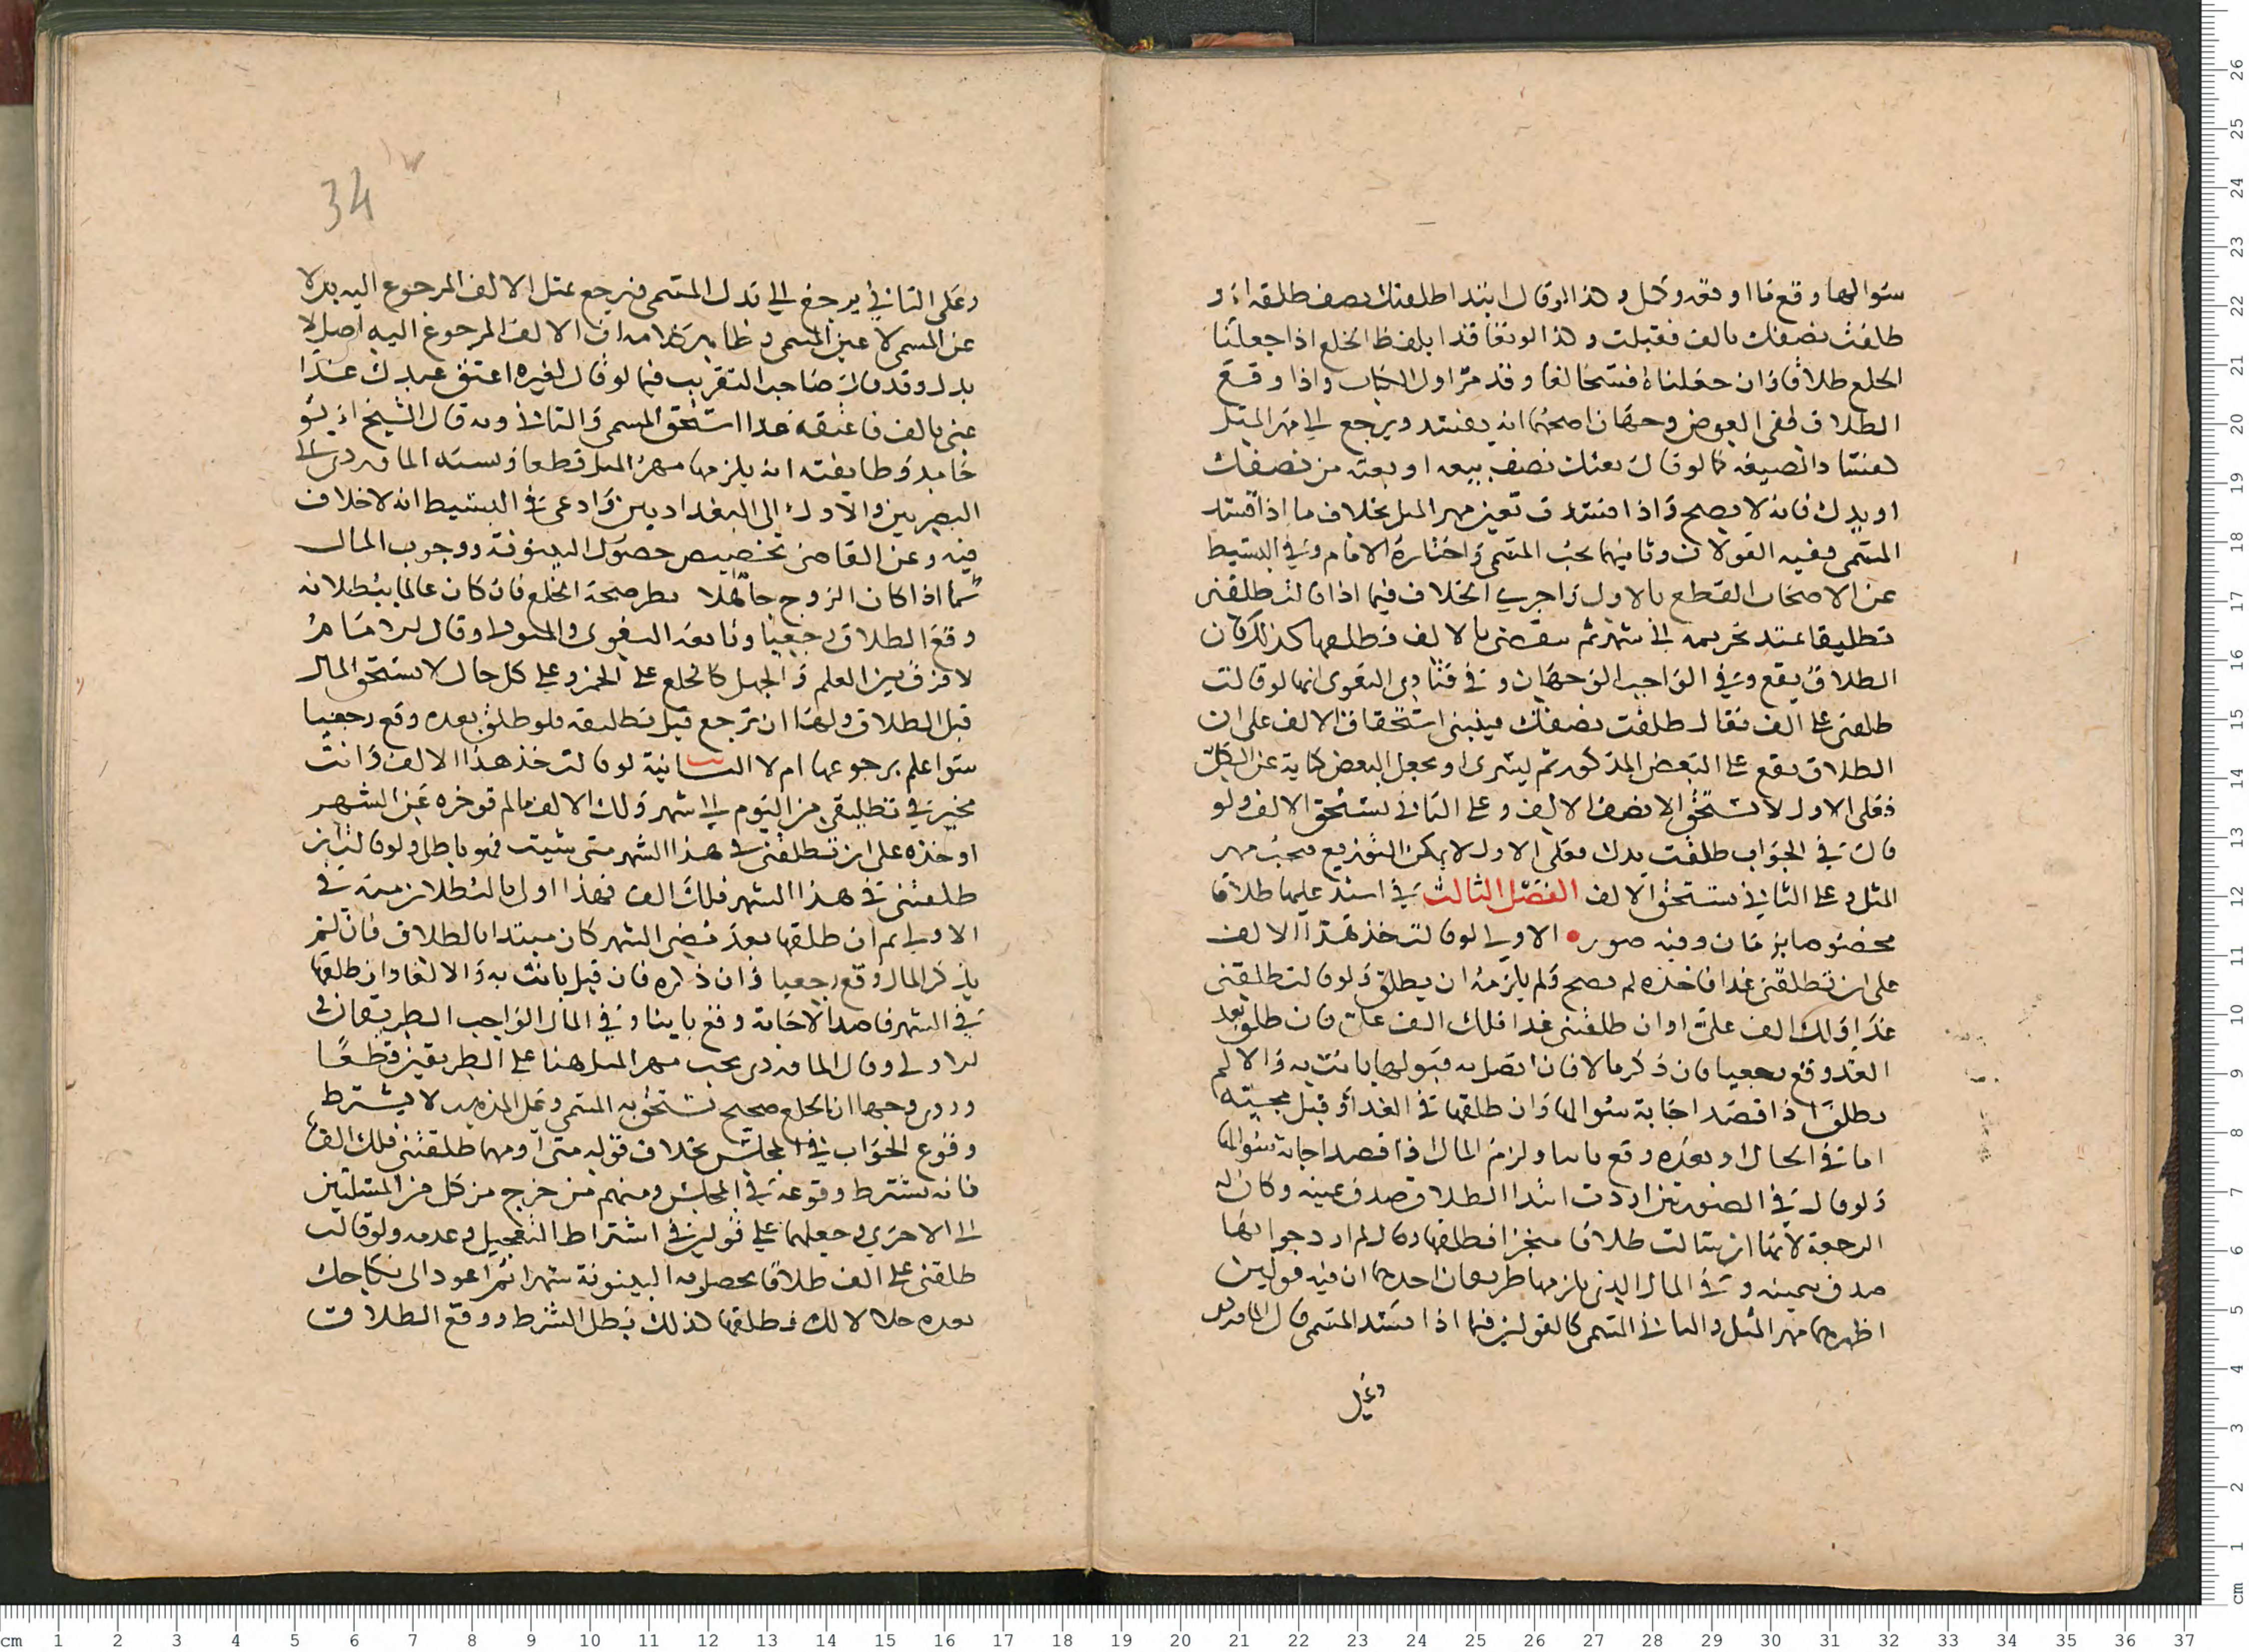 سوالها وقع ما اوقعه وكمل وهذا لو قال ابتدا طلقتك نصف طلقه او
طلقت نصفك بالف فقبلت وهذا لو تعاقدا بلفظ الخلع اذا جعلنا
الخلع طلاقا فان جعلناه فسخا لغا وقد مر اول الكتاب واذا وقع
الطلاق ففي العوض وجهان اصحهما انه يفسد ويرجع الي مهر المثل
لفساد الصيغه كما لو قال بعتك نصف بيعه او بعته من نصفك
او يدك فانه لا يصح واذا افسدت تعين مهر المثل بخلاف ما اذا فسد
المسمي ففيه القولان وثانيهما يجب المسمي واختاره الامام وفي البسيط
عن الاصحاب القطع بالاول واجري الخلاف فيما اذا قالت طلقني
تطليقا عتد تحريمه الي شهر ثم ينقضي بالالف فطلقها كذلك فان
الطلاق يقع وفي الواجب الوجهان وفي فتاوي البغوي انها لو قالت
طلقني علي الف فقال طلقت نصفك فينبني استحقاق الالف علي ان
الطلاق يقع علي البعض المذكور ثم يسري او يجعل البعض كناية عن الكل
فعلي الاول لا تستحق الا نصف الالف وعلي الثاني يستحق الالف ولو
قال في الجواب طلقت يدك فعلي الاول لا يمكن التوزيع فيجب مهر
المثل وعلي الثاني يستحق الالف الفصل الثالث في استدعايها طلاقا
مخصوصا بزمان وفيه صور الاولي لو قالت خذ هذا الالف
علي ان تطلقني غدا فاخذه لم يصح ولم يلزمه ان يطلق ولو قالت طلقني
غدا ولك الف علي او ان طلقتني غدا فلك الف علي فان طلق بعد
الغد وقع رجعيا فان ذكر مالا فان اتصل به قبولها بانت به والا لم
يطلق اذا قصد اجابة سوالها وان طلقها في الغد او قبل مجيئه
اما في الحال او بعده وقع باينا ولزم المال اذا قصد اجابة سوالها
ولو قال في الصورتين اردت ابتدا الطلاق صدق بيمينه وكان له
الرجعة لانها ان سالت طلاقا منجزا فطلقها وقال لم ارد جوابها
صدق بيمينه وفي المال الذي يلزمها طريقان احدهما ان فيه قولين
اظهرهما مهر المثل والثاني المسمي كالقولين فيما اذا فسد المسمي قال الماوردي
وعلي
34
وعلي الثاني يرجع الي بدل المسمي فيرجع بمثل الالف المرجوع اليه بدلا
عن المسمي لا عين المسمي وظاهر كلامه ان الالف المرجوع اليه اصل لا
بدل وقد قال صاحب التقريب فيما لو قال لغيره اعتق عبدك غدا
عني بالف فاعتقه غدا استحق المسمي والثاني وبه قال الشيخ ابو
حامد وطايفته انه يلزمها مهر المثل قطعا ونسبه الماوردي الي
البصريين والاول الي البغداديين وادعي في البسيط انه لا خلاف
فيه وعن القاضي تخصيص حصول البينونة ووجوب المال
بما اذا كان الزوج جاهلا يظن صحة الخلع فان كان عالما ببطلانه
وقع الطلاق رجعيا وتابعه البغوي والمتولي وقال الامام
لا فرق بين العلم والجهل كالخلع علي الخمر وعلي كل حال لا يستحق المال
قبل الطلاق ولها ان ترجع قبل تطليقه فلو طلق بعده وقع رجعيا
سوا علم برجوعها ام لا الثانية لو قالت خذ هذا الالف وانت
مخير في تطليقي من اليوم الي شهر ولك الالف ما لم توخره عن الشهر
او خذه علي ان تطلقني في هذا الشهر متي شيت فهو باطل ولو قالت ان
طلقتني في هذا الشهر فلك الف فهذا اولي بالبطلان منه في
الاولي ثم ان طلقها بعد مضي الشهر كان مبتدا بالطلاق فان لم
يذكر المال وقع رجعيا وان ذكره فان قبل بانت به والا لغا وان طلقها
في الشهر قاصدا لاجابة وقع باينا وفي المال الواجب الطريقان في
الاولي وقال الماوردي يجب مهر المثل هنا علي الطريقين قطعا
وروي وجها ان الخلع صحيح تستحق به المسمي وعلي المذهب لا يشترط
وقوع الجواب في المجلس بخلاف قوله متي او مهما طلقتني فلك الف
فانه يشترط وقوعه في المجلس ومنهم من خرج من كل من المسلتين
الي الاخري وجعلهما علي قولين في اشتراط التعجيل وعدمه ولو قالت
طلقني علي الف طلاقا يحصل به البينونة شهرا ثم اعود الي نكاحك
بعده حلالا لك فطلقها لذلك بطل الشرط ووقع الطلاق